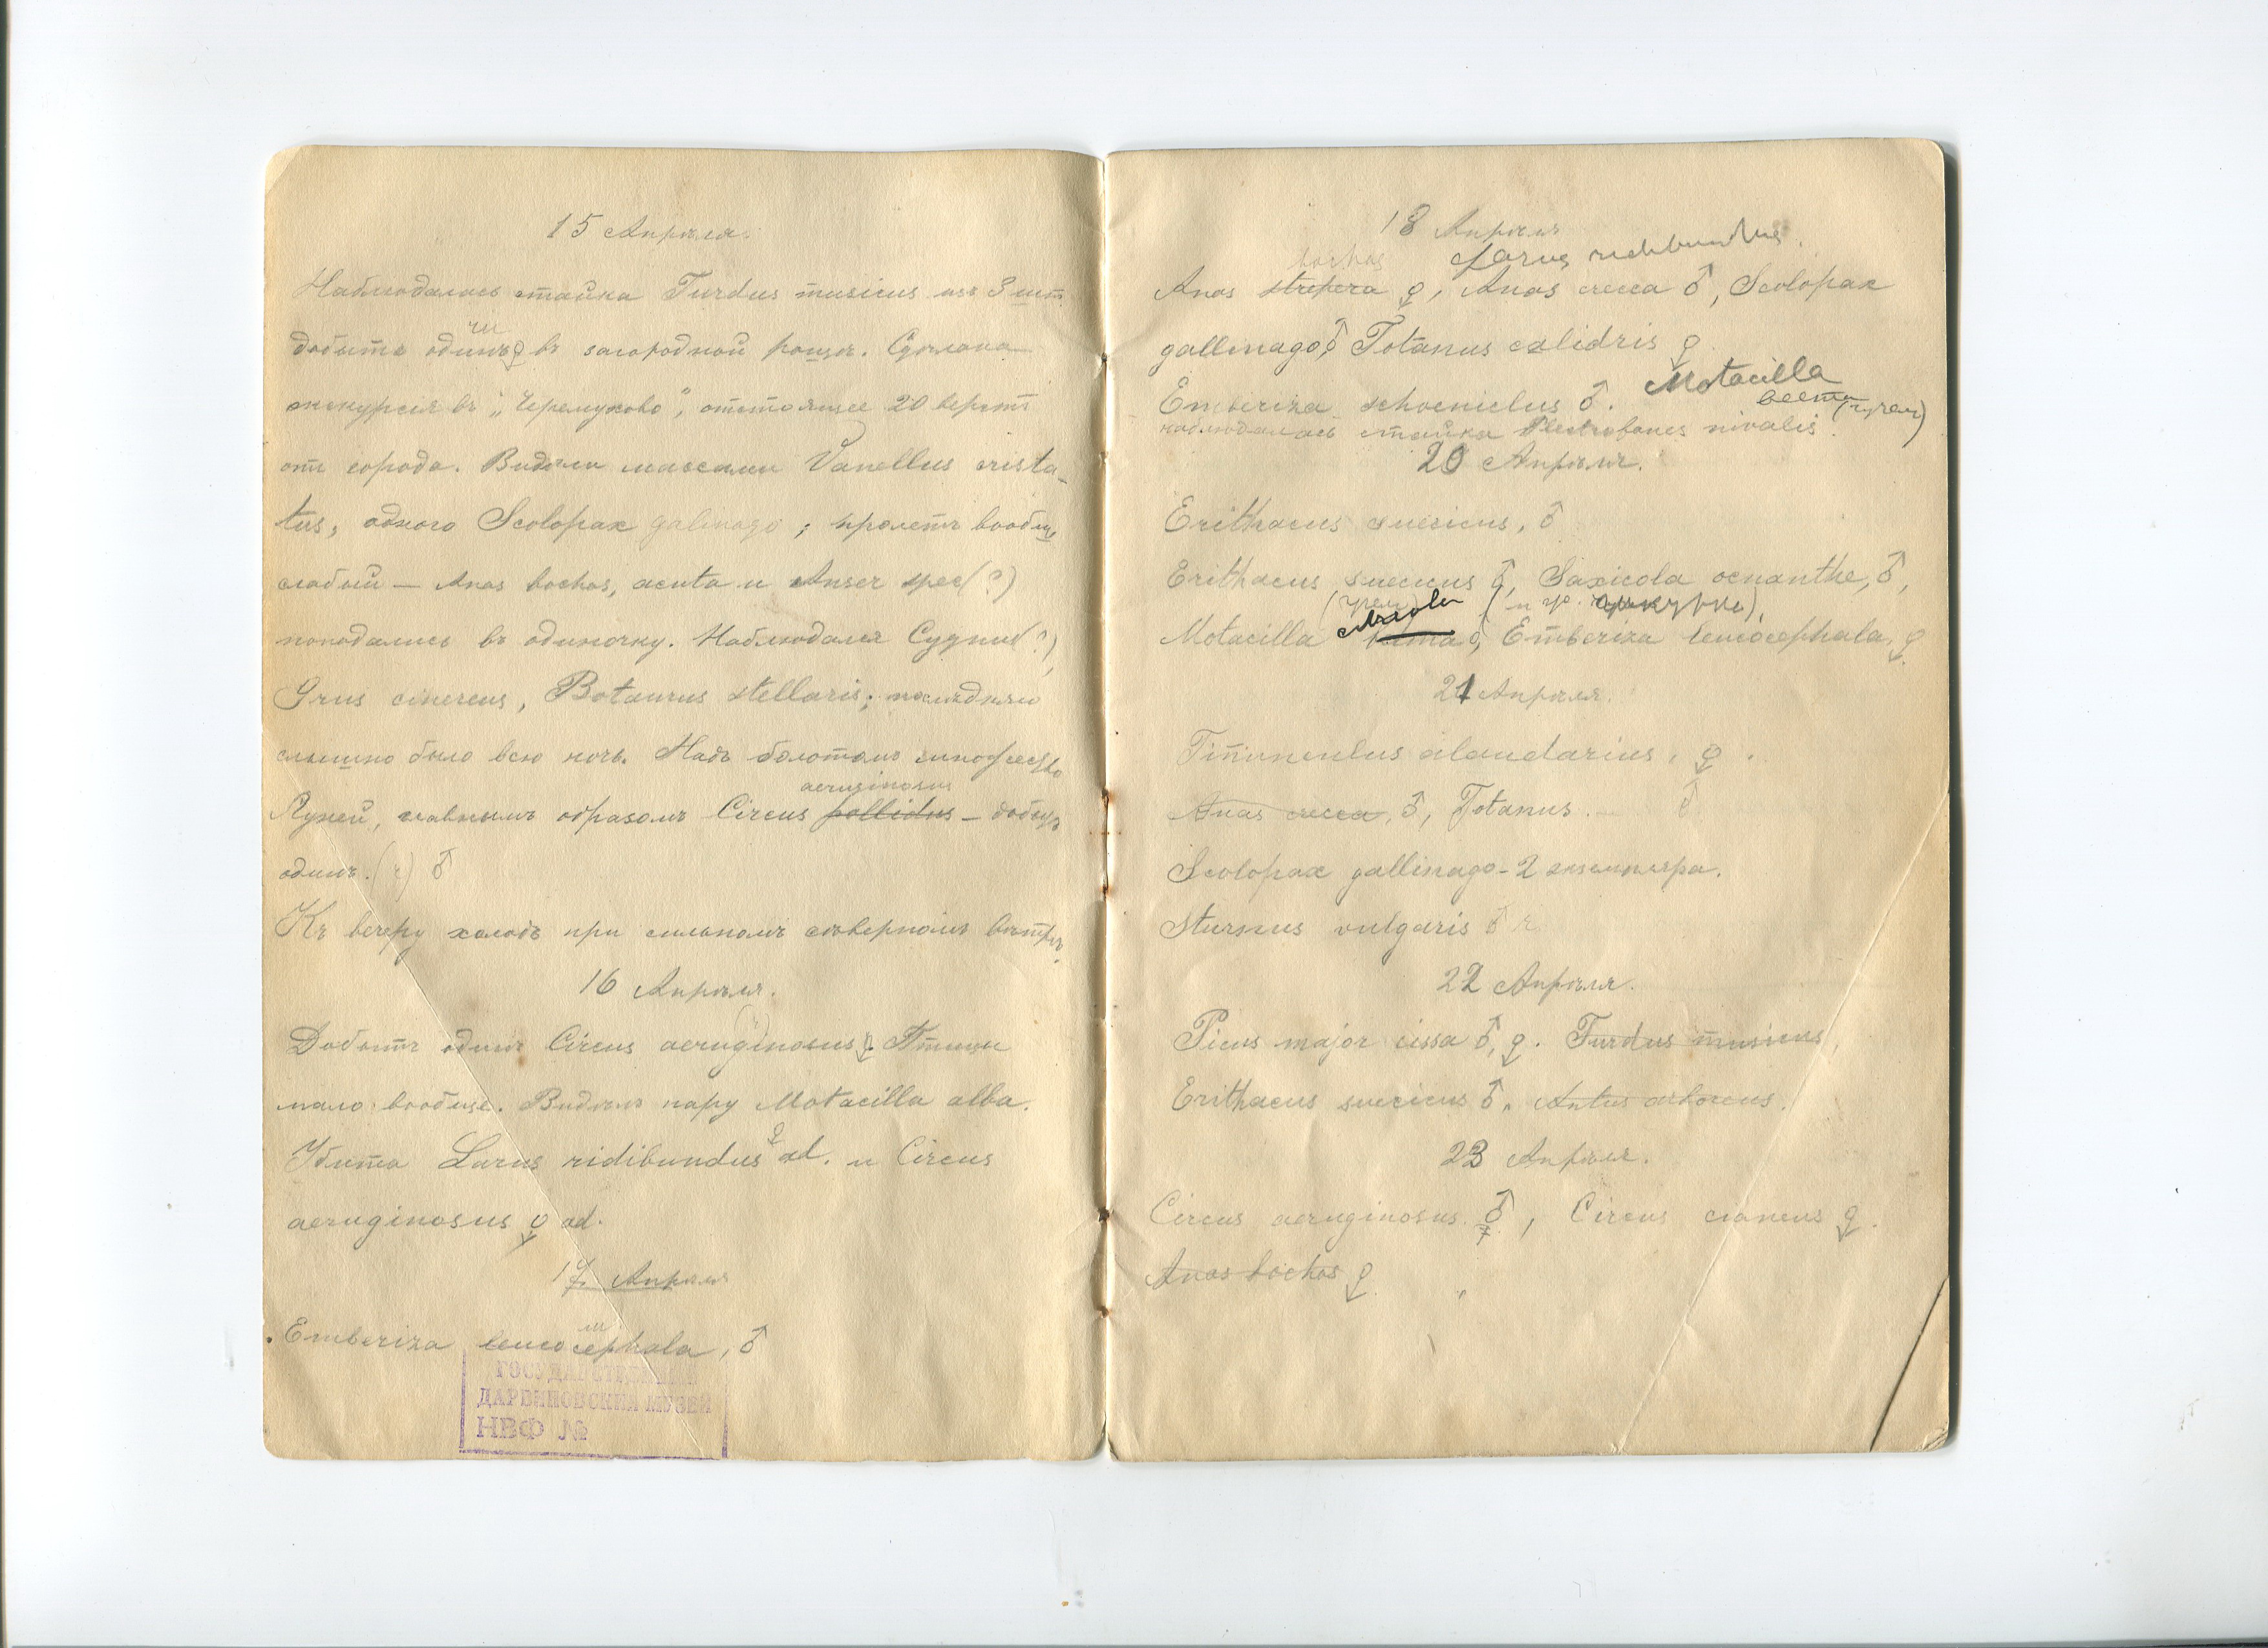 15 Апрѣля.
Наблюдалась стайка Turdus musicus изъ 3 шт.
добытъ одинъ ♀ въ загородной рощѣ. Сдѣлана
экскурсія въ „Черемухово“, отстоящее 20 верстъ
отъ города. Видѣли массами Vanellus crista-
tus, одного Scolopax galinago; пролетъ вообще
слабый — Anas boshas, acuta и Anser spec(?)
попадались въ одиночку. Наблюдался (?),
Grus cinereus, Botaurus stellaris; послѣднюю
слышно было всю ночь. Надъ болотомъ множество
aeruginosus
Луней, главнымъ образомъ Circus pallidus – добытъ
одинъ. ♂
Къ вечеру холодъ при сильномъ сѣверномъ вѣтрѣ.
16 Апрѣля.
Добытъ одинъ Circus aeruginosus ♀. Птицы
мало вообще. Видѣлъ пару Motacilla alba.
Убита Larus ridibundus ♀ ad. и Circus
aeruginosus ♀ ad.
17 Апрѣля
Emberiza leucocephala, ♂
ГОСУДАРСТВЕННЫЙ
ДАРВИНОВСКИЙ МУЗЕЙ
НВФ №
18 Апрѣля
boshas Larus ridibundus.
Anas strepera ♀, Anas crecca ♂, Scolopax
gallinago ♂, Totanus calidris ♀.
Emberiza schoeniclus ♂. Motacilla
наблюдалась стайка Plectrofanes nivalis.
20 Апрѣля.
Erithacus suecicus, ♂
Erithacus suecicus ♂, Saxicola oenanthe, ♂,
Motacilla Emberiza leucocephala, ♀.
21 Апрѣля.
Tinnunculus alaudarius, ♀.
Anas crecca, ♂, Totanus. — ♂
Scolopax gallinago - 2 экземпляра.
Sturnus vulgaris ♂
22 Апрѣля.
Picus major cissa ♂, ♀. Turdus musicus,
Erithacus suecicus ♂, Antus arboreus.
23 Апрѣля.
Circus aeruginosus ♂, Circus cianeus ♀.
Anas boshas ♀